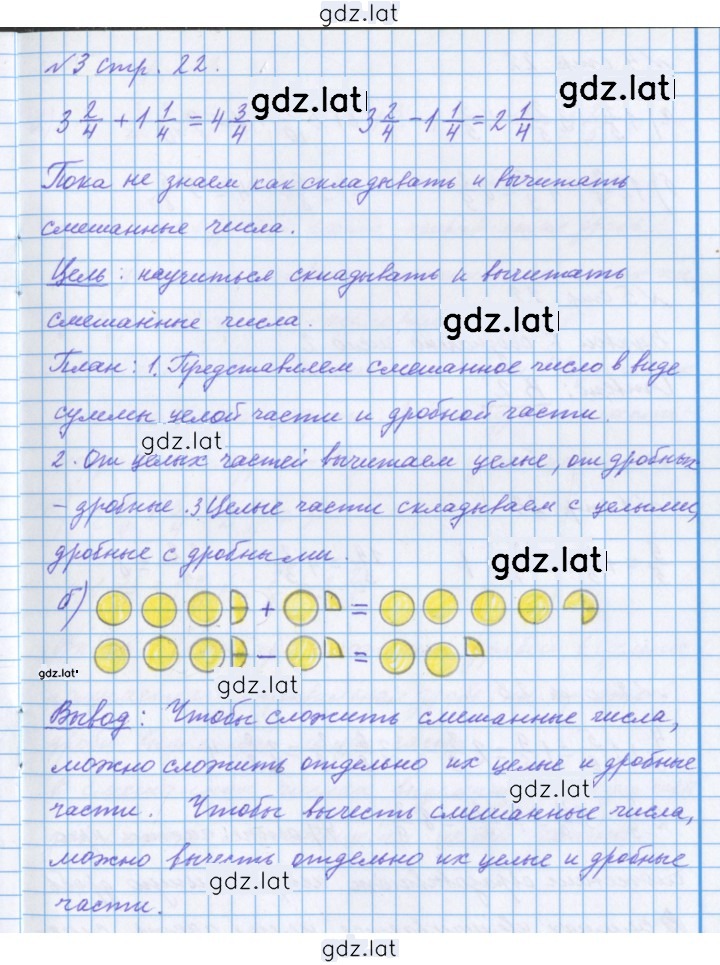 gdz.lat
№3 стр. 22.
3 2/4 + 1 1/4 = 4 3/4 gdz.lat 3 2/4 - 1 1/4 = 2 1/4 gdz.lat
Пока не знаем как складывать и вычитать
смешанные числа.
Цель: научиться складывать и вычитать
смешанные числа. gdz.lat
План: 1. Представляем смешанное число в виде
суммы целой части и дробной части.
gdz.lat
2. От целых частей вычитаем целые, от дробных
- дробные. 3 Целые части складываем с целыми,
дробные с дробными. gdz.lat
б) + =
- =
gdz.lat gdz.lat
Вывод: Чтобы сложить смешанные числа,
можно сложить отдельно их целые и дробные
gdz.lat
части. Чтобы вычесть смешанные числа,
можно вычесть отдельно их целые и дробные
gdz.lat
части.
gdz.lat